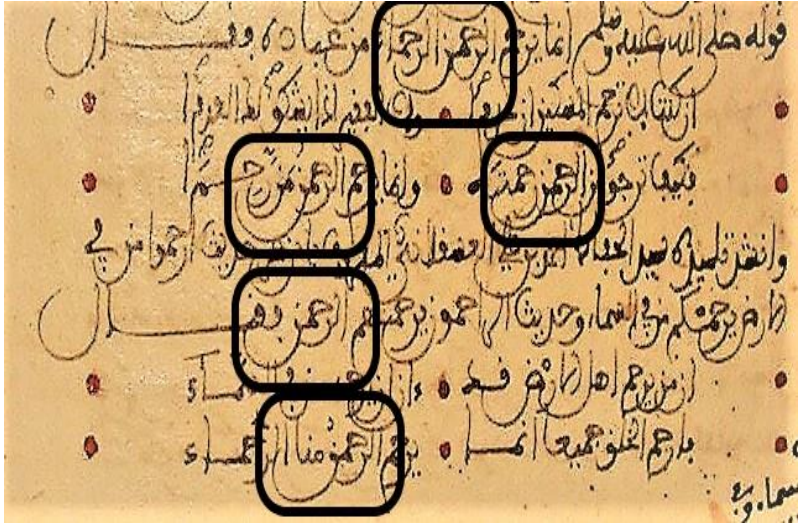 قوله صلى الله عليه وسلم انما يرحم الرحمن الرحماء من عباده وقال
ان كنت لا ترحم المسكين ان عدما ولا الفقير اذا يشكو لك العدما
فكيف ترجو من الرحمن رحمته وانما يرحم الرحمن من رحما
وانشد تلميذه سيد الحفاظ ارحموا من في
الارض يرحمكم من في السماء وحديث الراحمون يرحمهم الرحمن فقال
ان من يرحم اهل الارض قد ءان ان يرحمه من في السماء
فارحم الخلق جميعا انما يرحم الرحمن منا الرحماء